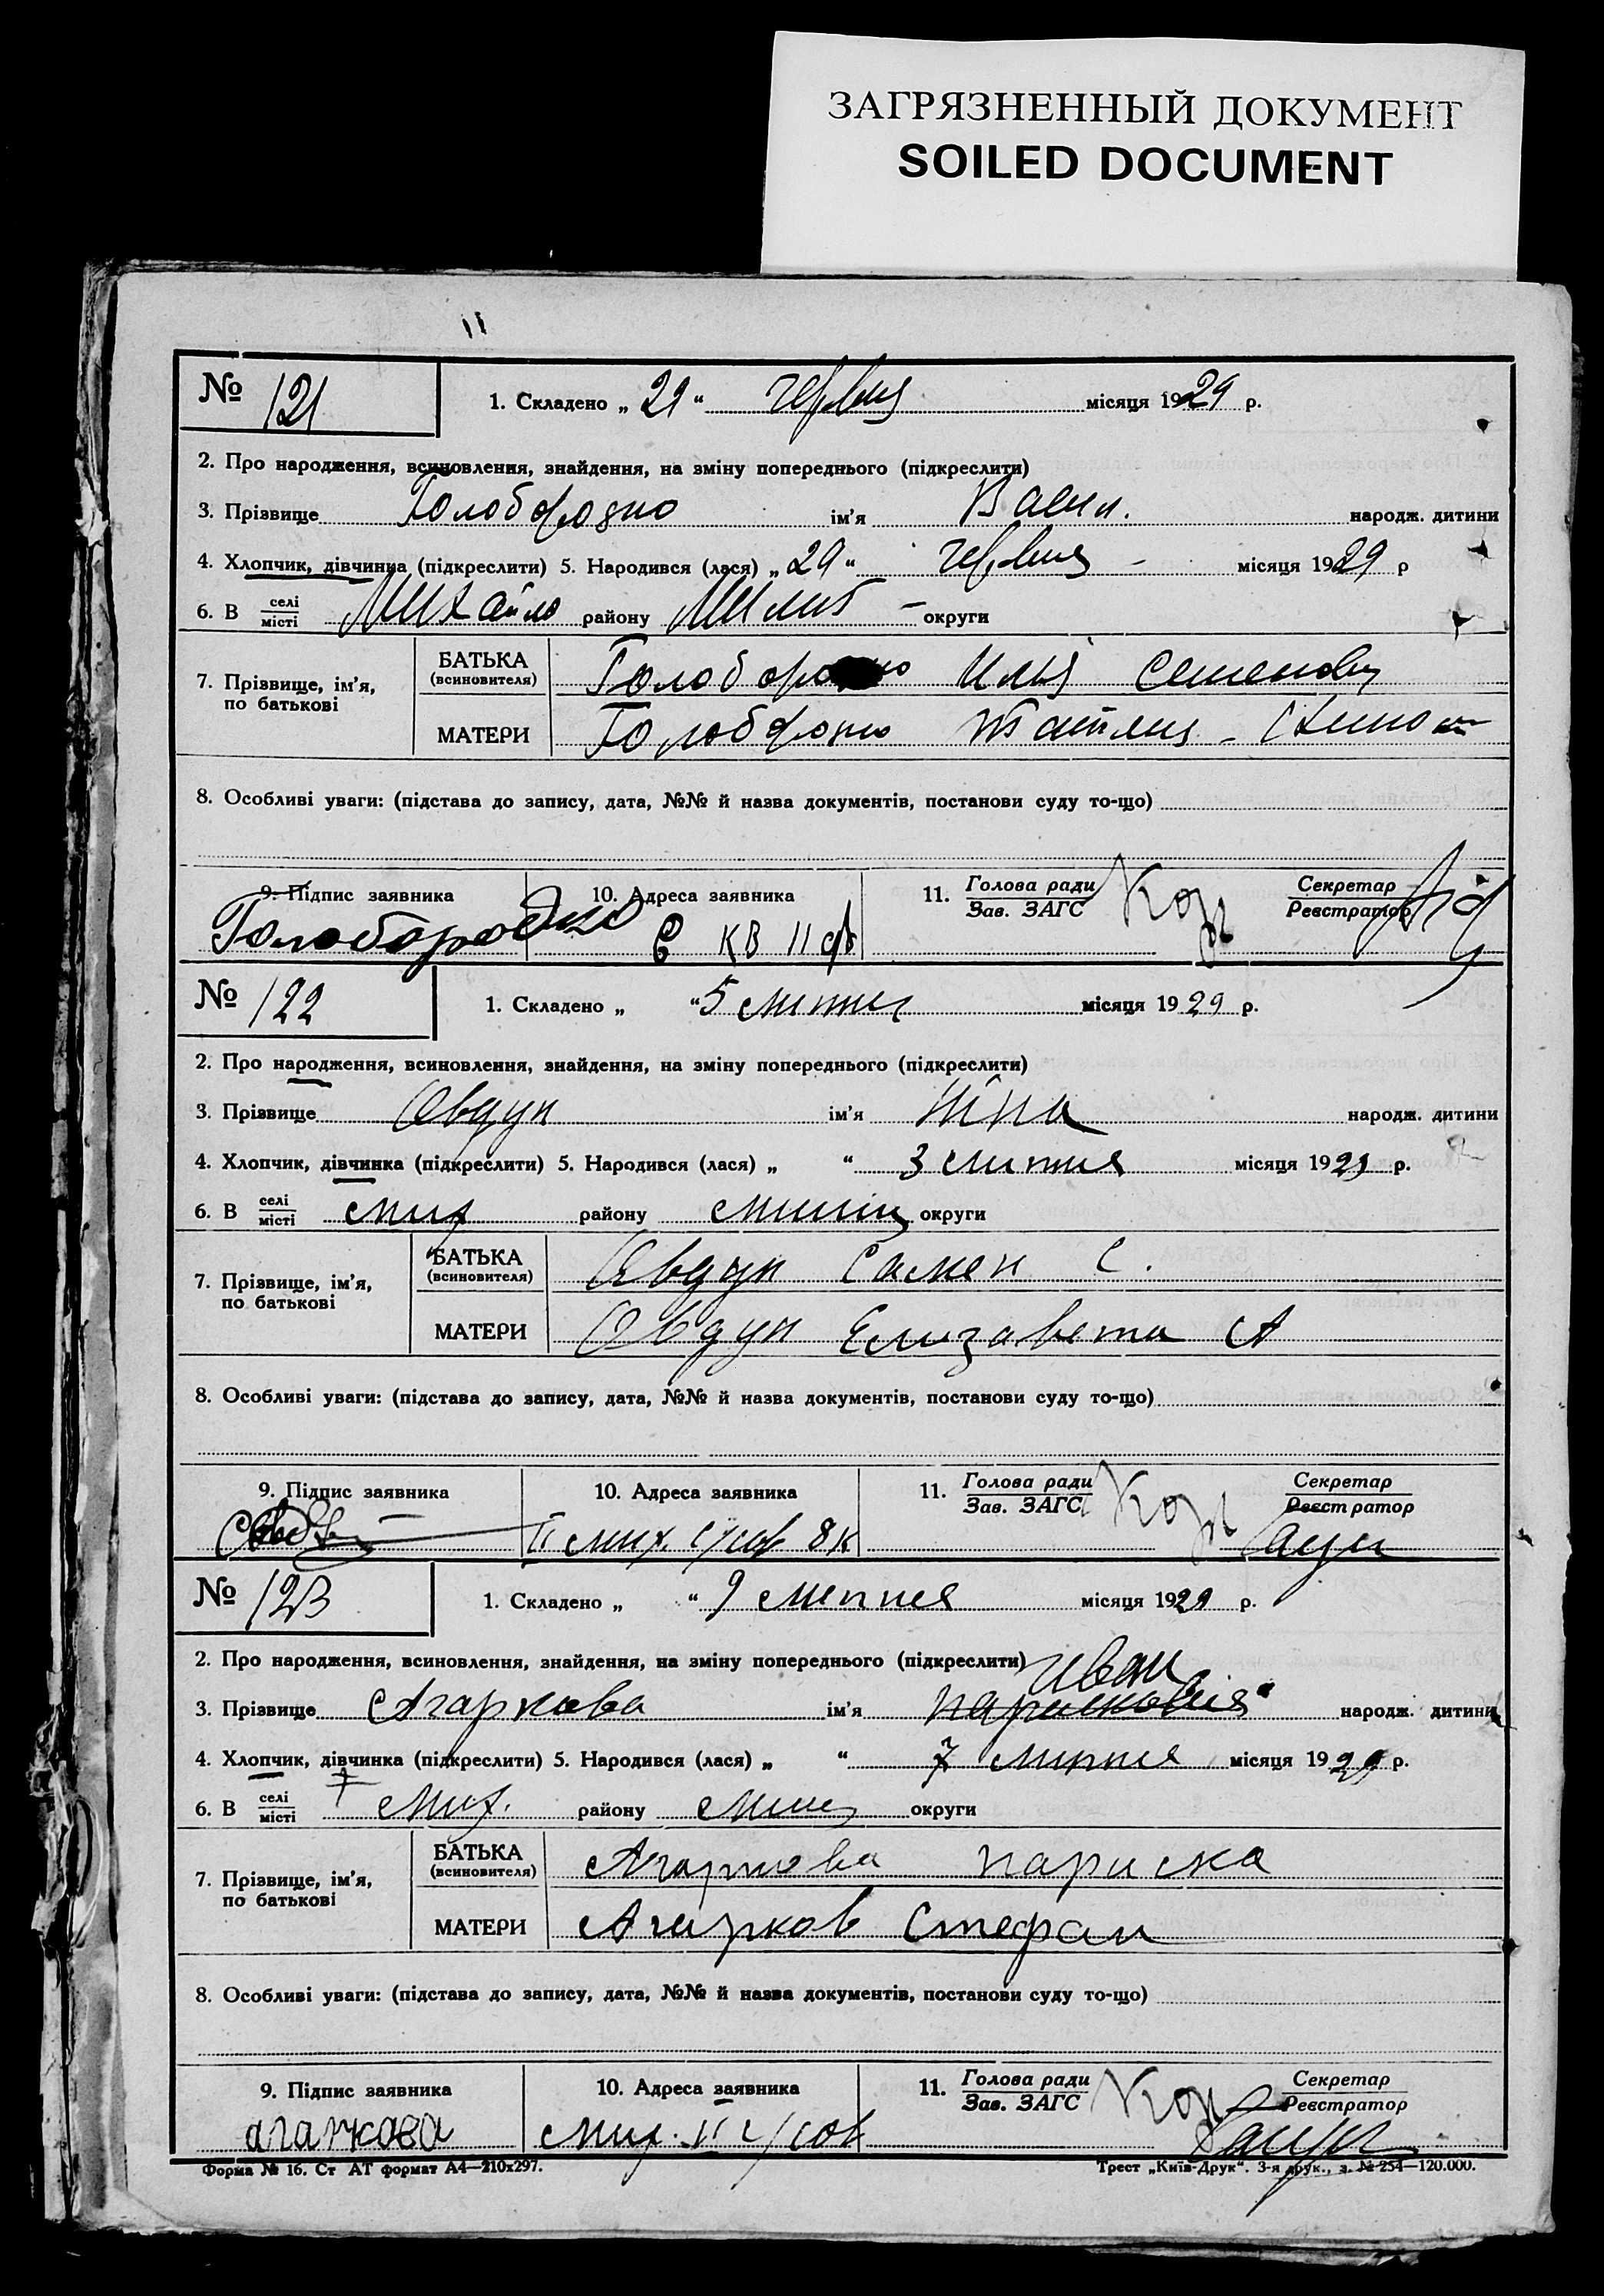 ЗАГРЯЗНЕННЫЙ ДОКУМЕНТ
SOILED DOCUMENT
№ 121 1. Складено „ 29 “ червня місяця 1929 р.
2. Про народження, всиновлення, знайдення, на зміну попереднього (підкреслити)
3. Прізвище Голобородко ім'я Васил. народж. дитини
4. Хлопчик, дівчинка (підкреслити) 5. Народився (лася) „ 29 “ червня – місяця 1929 р
6. В селі/місті Михайло району округи
7. Прізвище, ім'я, по батькові
БАТЬКА (всиновителя) Голобородко Илья Семенович
МАТЕРИ Татіяна
8. Особливі уваги: (підстава до запису, дата, №№ й назва документів, постанови суду то-що)
9. Підпис заявника 10. Адреса заявника 11. Голова ради/Зав. ЗАГС Секретар/Реєстратор
Голобородко КВ 11
№ 122 1. Складено „ “ 5 липня місяця 1929 р.
2. Про народження, всиновлення, знайдення, на зміну попереднього (підкреслити)
3. Прізвище Овдун ім'я Ніна народж. дитини
4. Хлопчик, дівчинка (підкреслити) 5. Народився (лася) „ “ 3 липня місяця 1929 р.
6. В селі/місті Мих району округи
7. Прізвище, ім'я, по батькові
БАТЬКА (всиновителя) Овдун Самен С.
МАТЕРИ Овдун Елизавета А
8. Особливі уваги: (підстава до запису, дата, №№ й назва документів, постанови суду то-що)
9. Підпис заявника 10. Адреса заявника 11. Голова ради/Зав. ЗАГС Секретар/Реєстратор
II Мих. 8 к
№ 123 1. Складено „ “ 9 липня місяця 1929 р.
2. Про народження, всиновлення, знайдення, на зміну попереднього (підкреслити)
Иван
3. Прізвище Агаркова ім'я Парасковия народж. дитини
4. Хлопчик, дівчинка (підкреслити) 5. Народився (лася) „ “ 7 липня місяця 1929 р.
6. В селі/місті Мих. району округи
7. Прізвище, ім'я, по батькові
БАТЬКА (всиновителя) Агаркова Париска
МАТЕРИ Агарков Стефан
8. Особливі уваги: (підстава до запису, дата, №№ й назва документів, постанови суду то-що)
9. Підпис заявника 10. Адреса заявника 11. Голова ради/Зав. ЗАГС Секретар/Реєстратор
агаркова Мих. II
Форма № 16. Ст АТ формат А4—210х297. Трест „Київ-Друк“. 3-я друк., з. № 254—120.000.